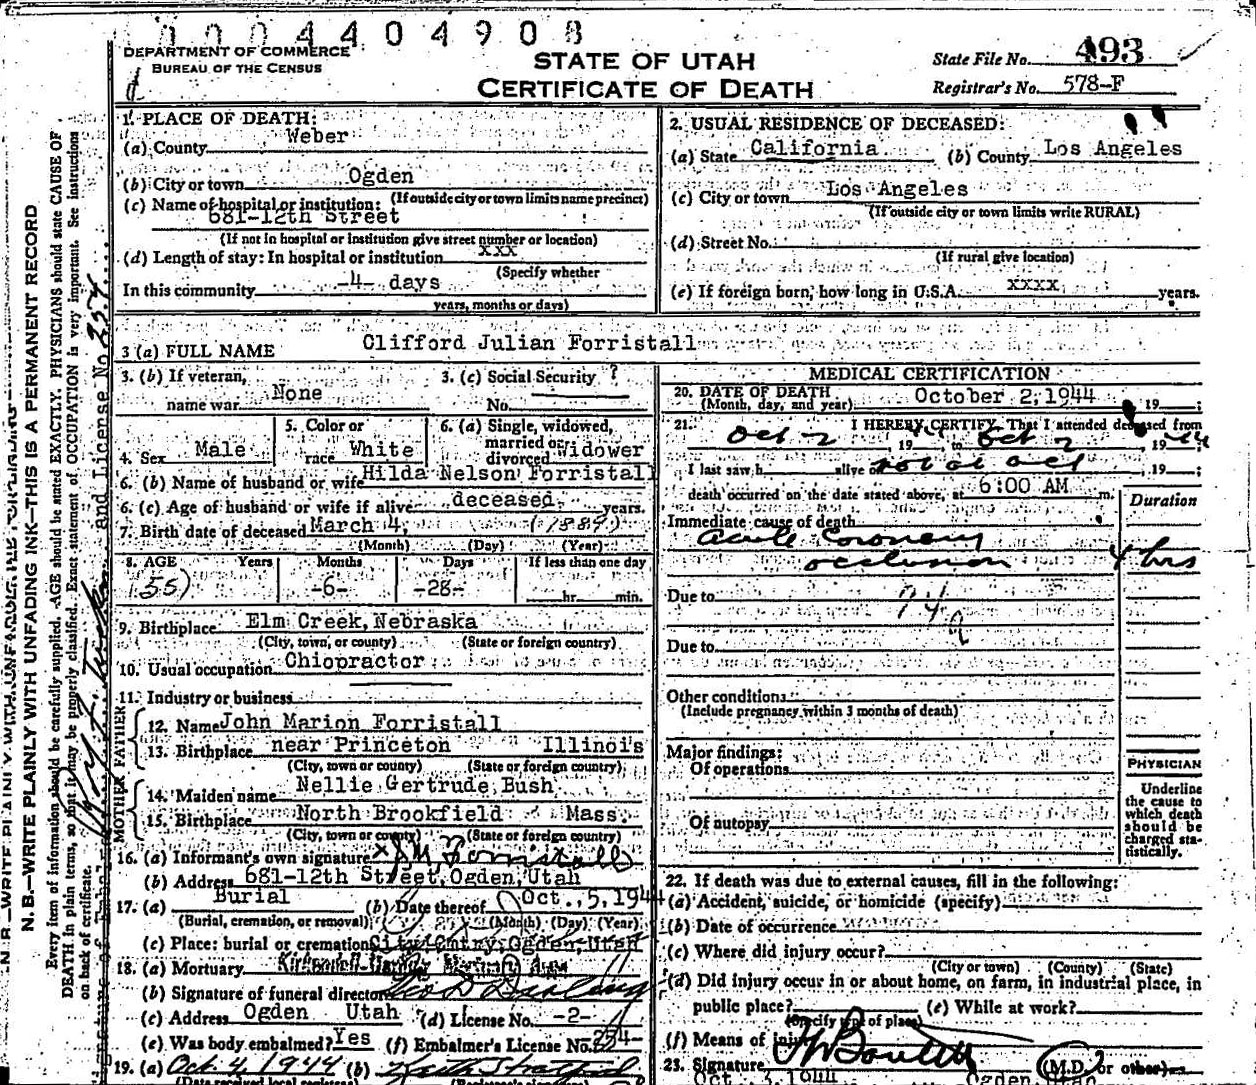 0004404908
DEPARTMENT OF COMMERCE
BUREAU OF THE CENSUS
STATE OF UTAH
CERTIFICATE OF DEATH
State File No. 493
Registrar's No. 578-F
N. B.—WRITE PLAINLY WITH UNFADING INK—THIS IS A PERMANENT RECORD
Every item of information should be carefully supplied. AGE should be stated EXACTLY. PHYSICIANS should state CAUSE OF
DEATH in plain terms, so that it may be properly classified. Exact statement of OCCUPATION is very important. See instructions
on back of certificate.
and License No. 254
1. PLACE OF DEATH:
(a) County Weber
(b) City or town Ogden
(If outside city or town limits name precinct)
(c) Name of hospital or institution:
681-12th Street
(If not in hospital or institution give street number or location)
(d) Length of stay: In hospital or institution xxx
(Specify whether
In this community -4- days
years, months or days)
2. USUAL RESIDENCE OF DECEASED:
(a) State California (b) County Los Angeles
(c) City or town Los Angeles
(If outside city or town limits write RURAL)
(d) Street No.
(If rural give location)
(e) If foreign born, how long in U.S.A. xxxx years.
3 (a) FULL NAME Clifford Julian Forristall
3. (b) If veteran,
name war None
3. (c) Social Security ?
No.
4. Sex Male
5. Color or
race White
6. (a) Single, widowed,
married or
divorced Widower
6. (b) Name of husband or wife Hilda Nelson Forristall
6. (c) Age of husband or wife if alive deceased years.
7. Birth date of deceased March 4, (1889)
(Month) (Day) (Year)
8. AGE Years Months Days If less than one day
55) -6- -28- hr. min.
9. Birthplace Elm Creek, Nebraska
(City, town, or county) (State or foreign country)
10. Usual occupation Chiopractor
11. Industry or business
FATHER
12. Name John Marion Forristall
13. Birthplace near Princeton Illinois
(City, town or county) (State or foreign country)
MOTHER
14. Maiden name Nellie Gertrude Bush
15. Birthplace North Brookfield Mass.
(City, town or county) (State or foreign country)
16. (a) Informant's own signature x J M Forristall
(b) Address 681-12th Street, Ogden, Utah
17. (a) Burial (b) Date thereof Oct. 5, 1944
(Burial, cremation, or removal) (Month) (Day) (Year)
(c) Place: burial or cremation City Cmtry, Ogden, Utah
18. (a) Mortuary
(b) Signature of funeral director
(c) Address Ogden Utah (d) License No. -2-
(e) Was body embalmed? Yes (f) Embalmer's License No. 254-
19. (a) Oct. 4, 1944 (b)
MEDICAL CERTIFICATION
20. DATE OF DEATH
(Month, day, and year) October 2, 1944 , 19 ;
21. I HEREBY CERTIFY, That I attended deceased from
Oct 2 19 44 to Oct 2 , 19 44
I last saw h alive on not at all , 19 ;
death occurred on the date stated above, at 6:00 AM m.
Duration
Immediate cause of death
Acute Coronary
occlusion 4 hrs
Due to 94 a
Due to
Other conditions
(Include pregnancy within 3 months of death)
Major findings:
Of operations
Of autopsy
PHYSICIAN
Underline
the cause to
which death
should be
charged sta-
tistically.
22. If death was due to external causes, fill in the following:
(a) Accident, suicide, or homicide (specify)
(b) Date of occurrence
(c) Where did injury occur?
(City or town) (County) (State)
(d) Did injury occur in or about home, on farm, in industrial place, in
public place? (e) While at work?
(Specify type of place)
(f) Means of injury
23. Signature (M.D. or other)